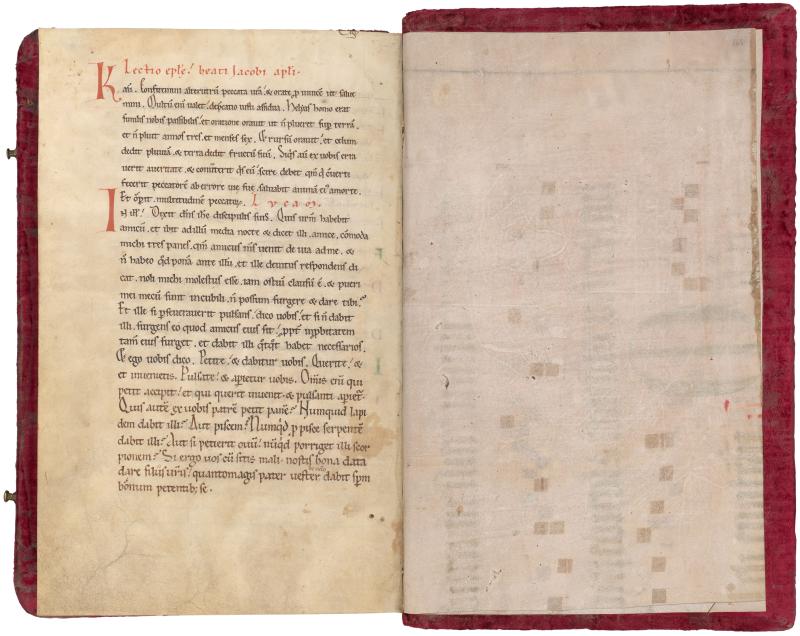 Lectio epłe. beati Jacobi apłi.
K arı̄. Confitemini alterutrū peccata ur̄a. & orate ꝓ inuicē ut salue
mini. Multū enī ualet dep̄catio iusti assidua. Helyas homo erat
similis nobis passibilis. et oratione orauit ut n̄ plueret sup̱ terrā.
et n̄ pluit annos tres. et menses sex. Et rursū orauit. et celum
dedit pluuiā. & terra dedit fructū suū. Siq̇s aū ex uobis erra
uerit a ueritate. & conuerterit q̇s eū. scire debet qm̄ q̇ conuerti
fecerit peccatorē ab errore uie sue. saluabit animā ei᷒ a morte.
Et op̱it multitudinē peccatoꝝ. Lucam.
IN ill̄. Dixit dn̄s ihc̄ discipulis suis. Quis ur̄m habebit
amicū. et ibit ad illū media nocte & dicet illi. amice. cōmoda
michi tres panes. qm̄ amicus m̄s uenit de uia ad me. &
n̄ habeo qd̄ ponā ante illū. et ille deintus respondens di
cat. noli michi molestus esse. iam ostiū clausū ē. & pueri
mei mecū sunt in cubili. n̄ possum surgere & dare tibi.
Et ille si ꝑseuerauerit pulsans. dico uobis. et si n̄ dabit
illi. surgens eo quod amicus eius sit. ꝓpt̄ inꝓbitatem
tam̄ eius surget. et dabit illi q̇tq̇t habet necessarios.
Et ego uobis dico. Petite. & dabitur uobis. Querite. &
et inuenietis. Pulsate. & ap̱ietur uobis. Om̄is enī qui
petit accipit. et qui querit inuenit. & pulsanti ap̱iet᷒.
Quis autē ex uobis patrē petit panē. Numquid lapi
dem dabit illi. Aut piscem. Numqd̄ ꝓ pisce serpentē
dabit illi. Aut si petierit ouū. nūqd̄ porriget illi scor
pionem. Si ergo uos cū sitis mali. nostis bona data
dare filiis ur̄is. quantomagis pater uester de celo dabit sp̄m
bonum petentib; se.